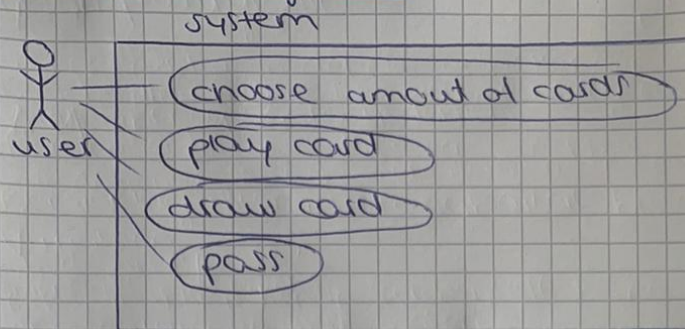 system
choose amout of cards
user
play card
draw card
pass